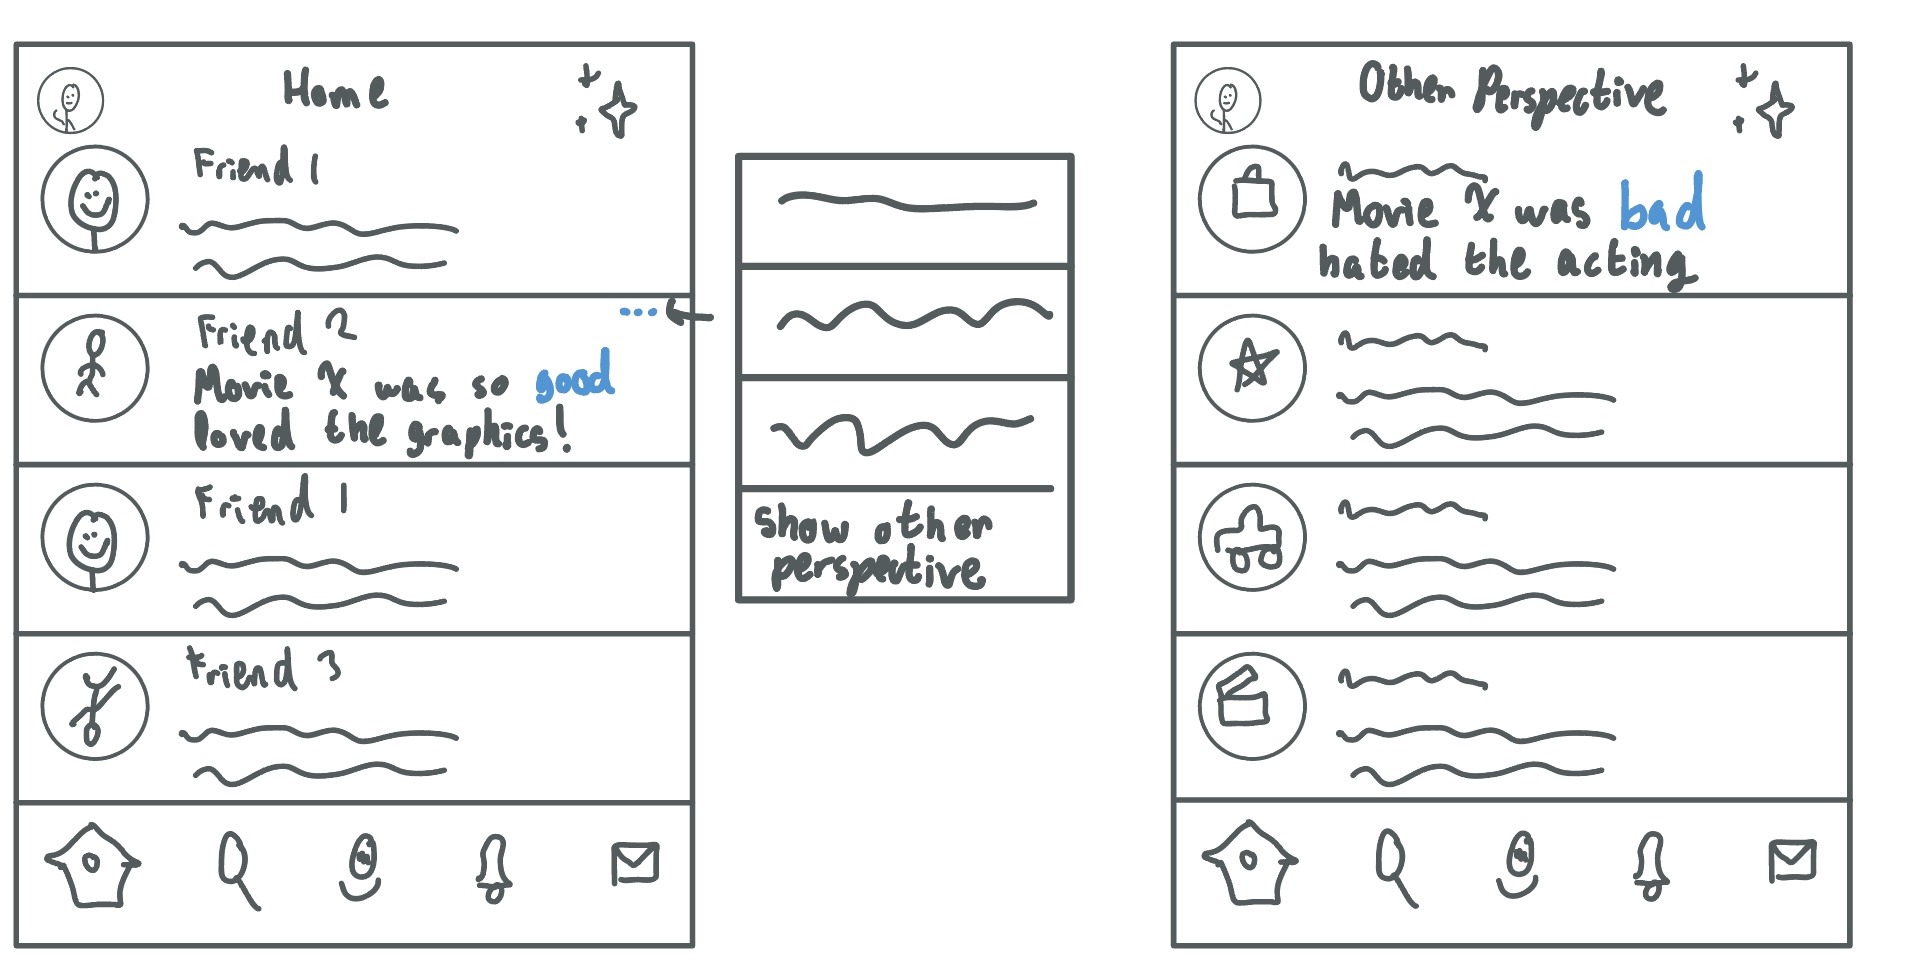 Home
Friend 1
Friend 2
Movie X was so good
loved the graphics!
Friend 1
Friend 3
show other
perspective
Other Perspective
Movie X was bad
hated the acting